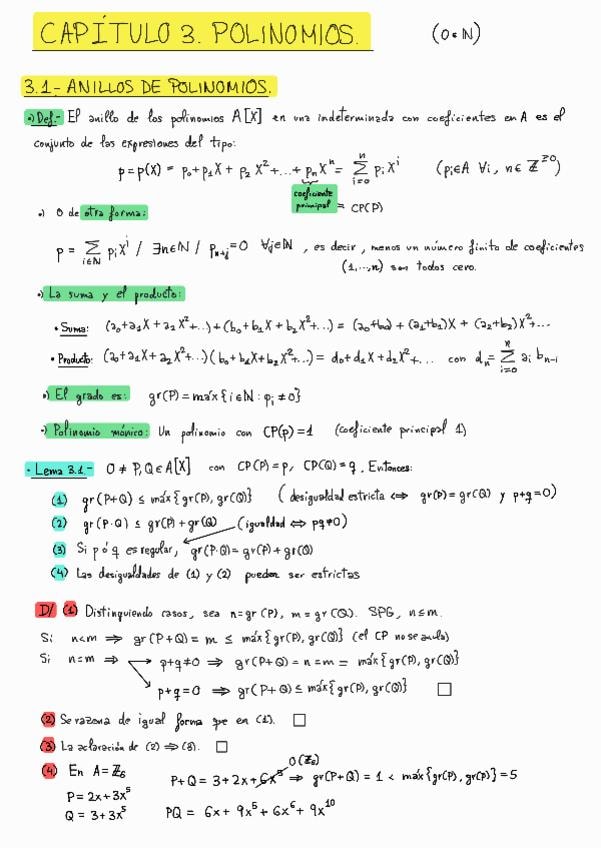 CAPÍTULO 3. POLINOMIOS. (0 ∈ ℕ)
3.1.- ANILLOS DE POLINOMIOS.
•) Def.- El anillo de los polinomios A[X] en una indeterminada con coeficientes en A es el
conjunto de las expresiones del tipo:
p = p(X) = p₀ + p₁X + p₂X² + ... + pₙXⁿ = ∑ᵢ₌₀ⁿ pᵢXⁱ (pᵢ ∈ A ∀i, n ∈ ℤ^≥0)
coeficiente principal = CP(P)
•) O de otra forma:
p = ∑_{i∈ℕ} pᵢXⁱ / ∃n∈ℕ / pₙ₊ⱼ = 0 ∀j∈ℕ, es decir, menos un número finito de coeficientes
(1,...,n) son todos cero.
•) La suma y el producto:
• Suma: (a₀+a₁X+a₂X²+...)+(b₀+b₁X+b₂X²+...) = (a₀+b₀)+(a₁+b₁)X+(a₂+b₂)X²+...
• Producto: (a₀+a₁X+a₂X²+...)(b₀+b₁X+b₂X²+...) = d₀+d₁X+d₂X²+... con dₙ = ∑ᵢ₌₀ⁿ aᵢ bₙ₋ᵢ
•) El grado es: gr(P) = máx{i∈ℕ : pᵢ ≠ 0}
•) Polinomio mónico: Un polinomio con CP(p) = 1 (coeficiente principal 1)
• Lema 3.1.- 0 ≠ P,Q ∈ A[X] con CP(P) = p, CP(Q) = q. Entonces:
(1) gr(P+Q) ≤ máx{gr(P), gr(Q)} (desigualdad estricta ⟺ gr(P) = gr(Q) y p+q = 0)
(2) gr(P·Q) ≤ gr(P) + gr(Q) (igualdad ⟺ pq ≠ 0)
(3) Si p ó q es regular, gr(P·Q) = gr(P) + gr(Q)
(4) Las desigualdades de (1) y (2) pueden ser estrictas
D/ (1) Distinguiendo casos, sea n = gr(P), m = gr(Q). SPG, n ≤ m.
Si n<m ⟹ gr(P+Q) = m ≤ máx{gr(P), gr(Q)} (el CP no se anula)
Si n=m ⟹ p+q≠0 ⟹ gr(P+Q) = n = m = máx{gr(P), gr(Q)}
p+q=0 ⟹ gr(P+Q) ≤ máx{gr(P), gr(Q)} □
(2) Se razona de igual forma que en (1). □
(3) La aclaración de (2) ⟹ (3). □
(4) En A = ℤ₆ P+Q = 3+2x+6x⁵ 0 (ℤ₆) ⟹ gr(P+Q) = 1 < máx{gr(P), gr(P)} = 5
P = 2x+3x⁵
Q = 3+3x⁵ PQ = 6x + 9x⁵ + 6x⁶ + 9x¹⁰